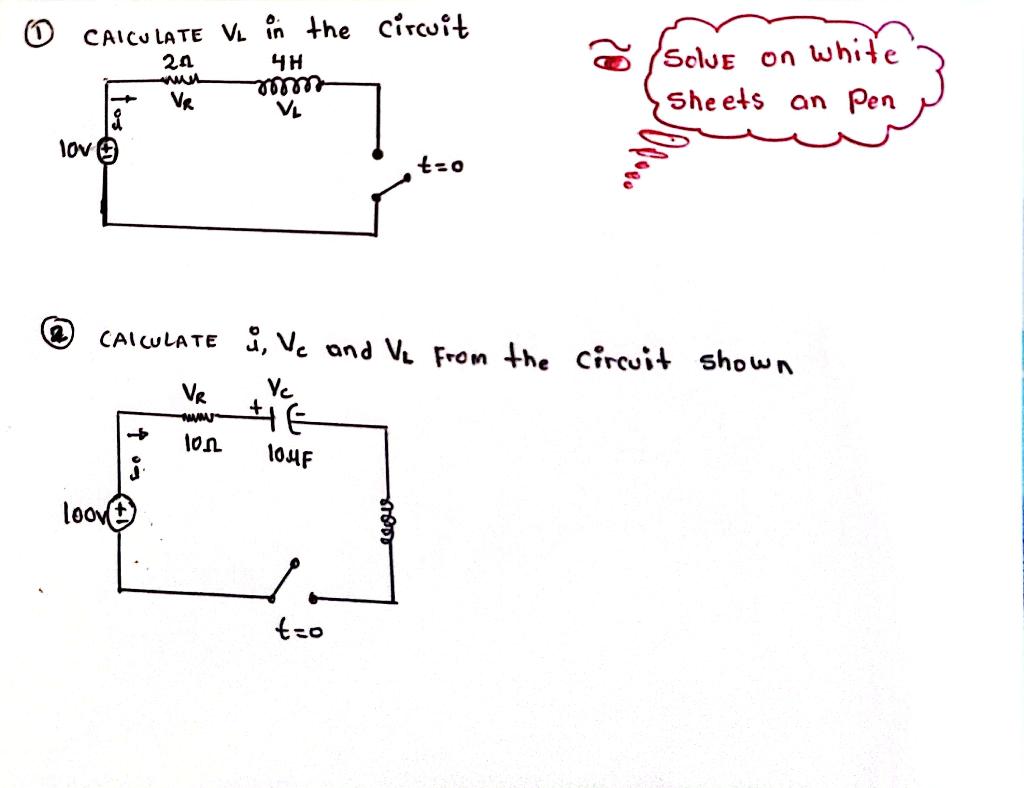 ① CALCULATE VL in the circuit
2Ω 4H
VR VL
i
10V
t=0
SOLVE on white
Sheets an Pen
② CALCULATE i, Vc and VL From the circuit shown
VR Vc
+ -
10Ω 10µF
i
100V
t=0